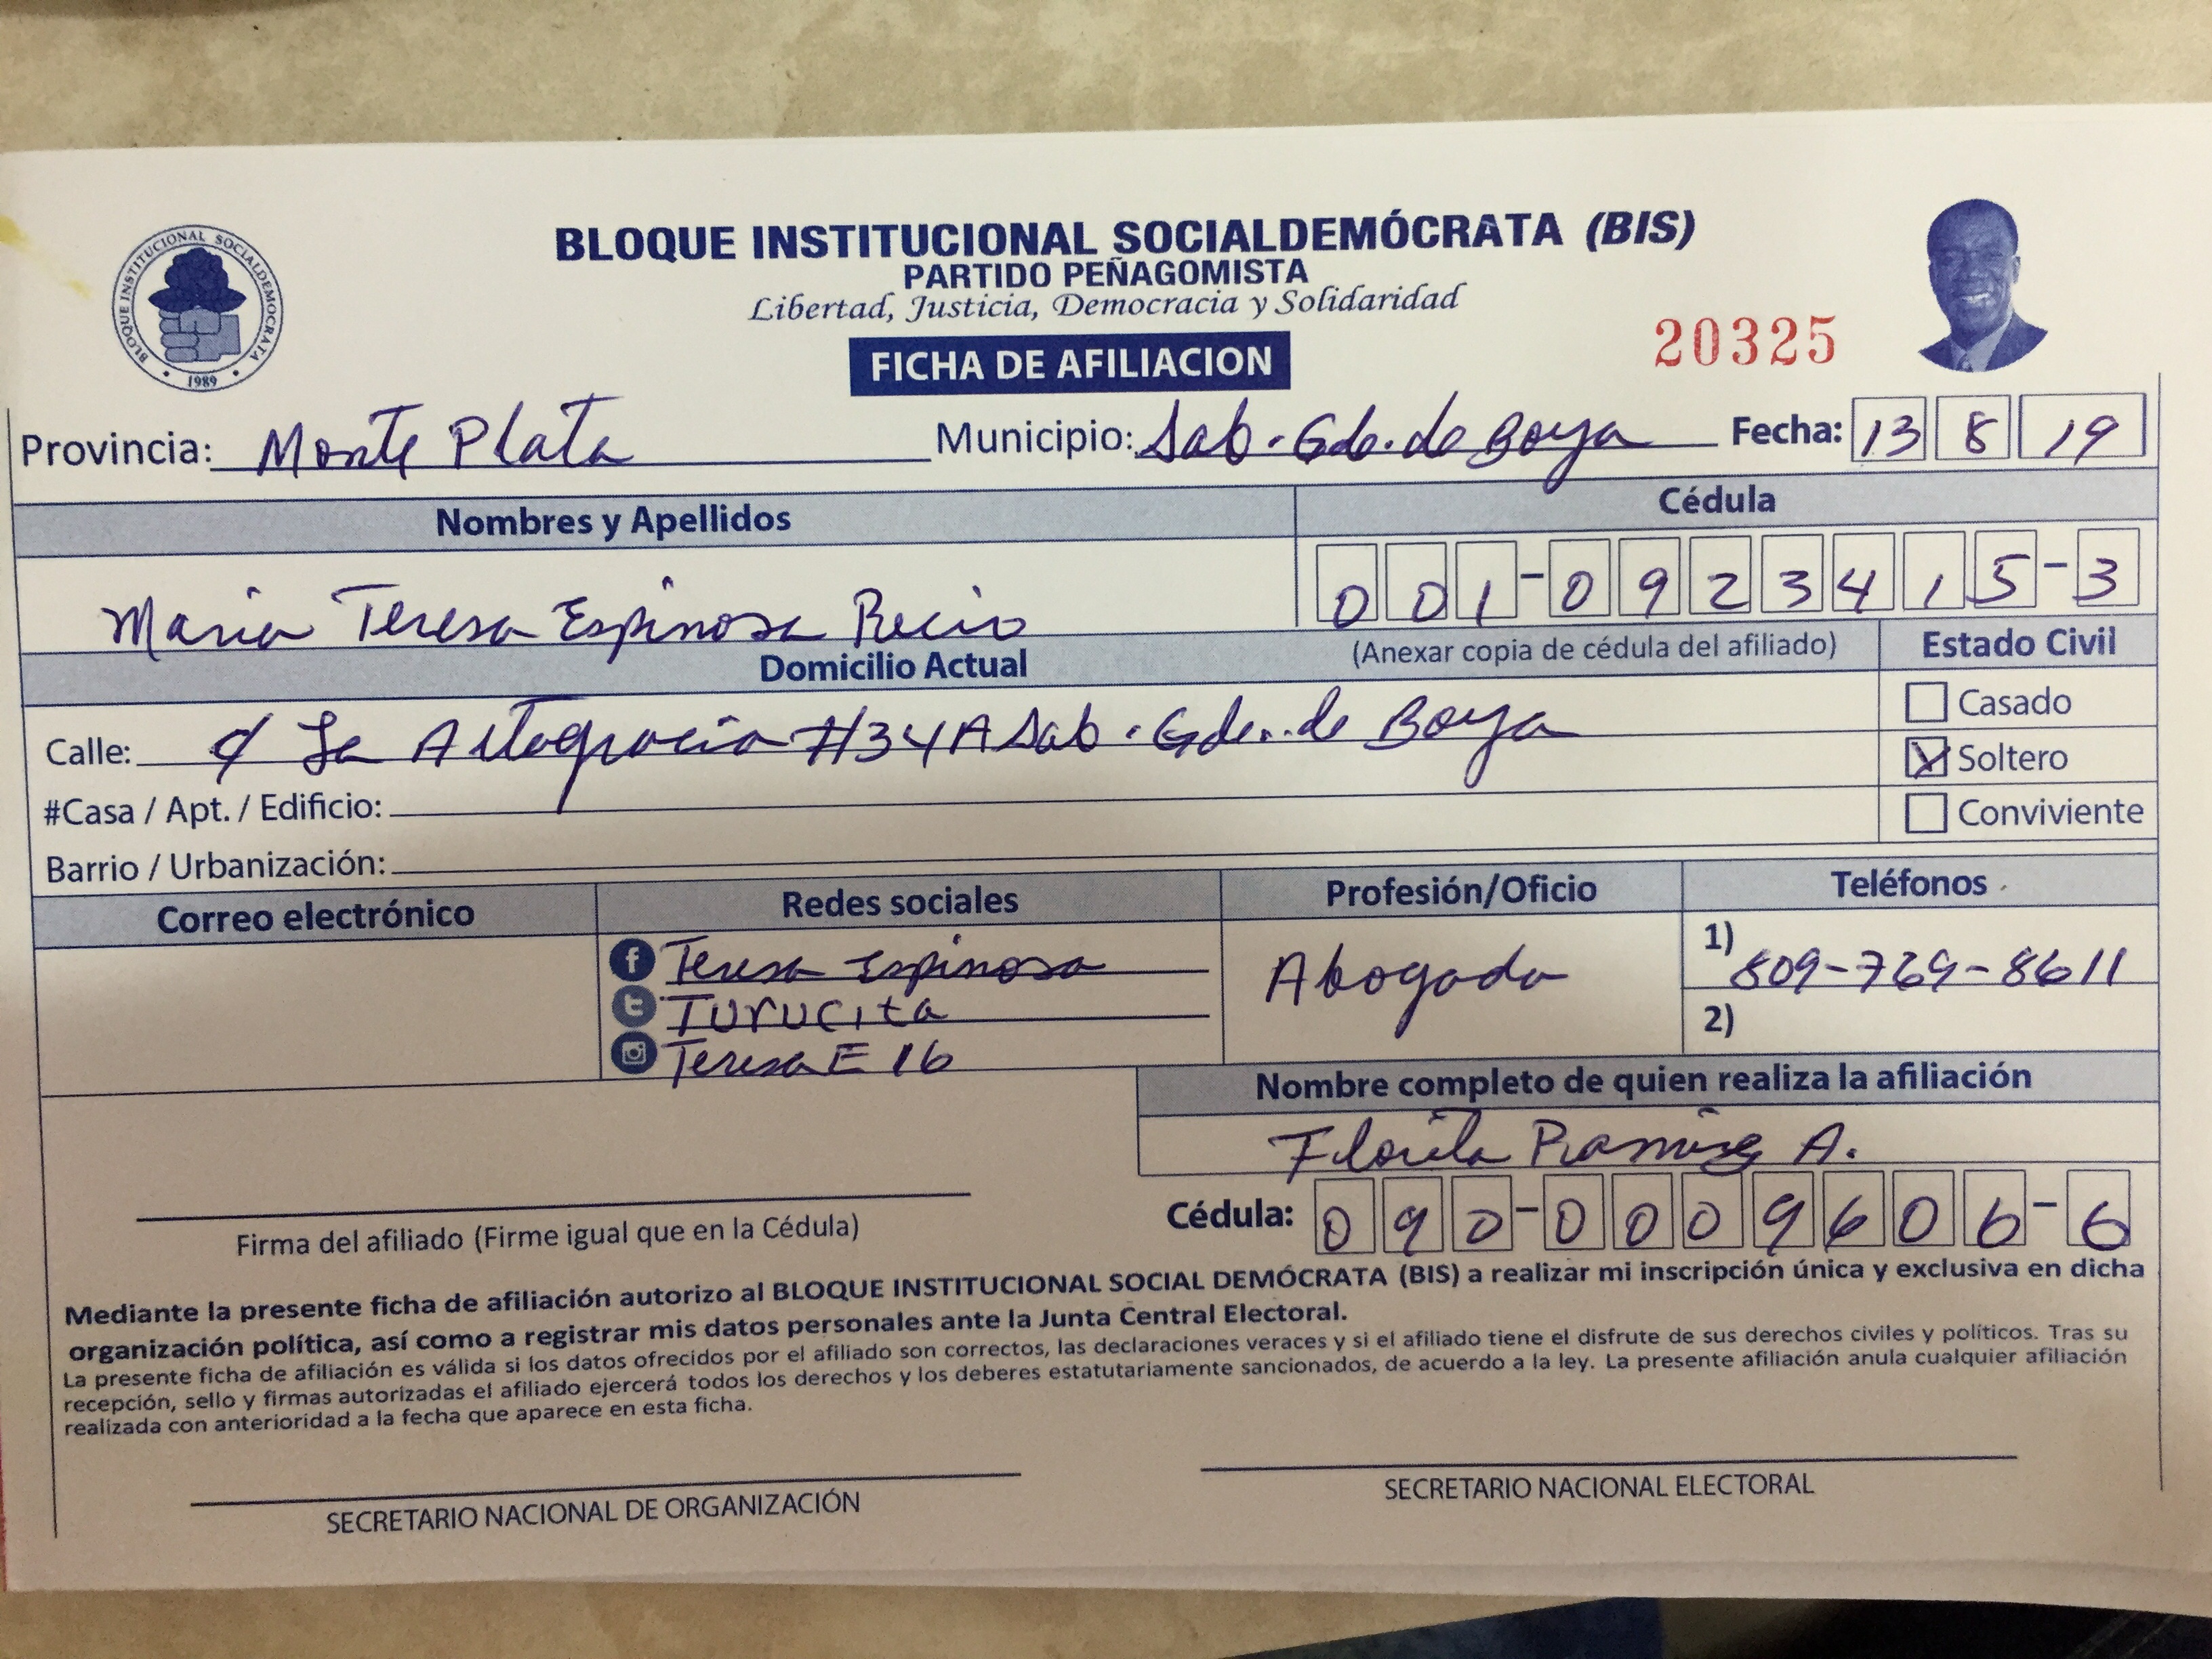 BLOQUE INSTITUCIONAL SOCIALDEMÓCRATA (BIS)
PARTIDO PEÑAGOMISTA
Libertad, Justicia, Democracia y Solidaridad
BLOQUE INSTITUCIONAL SOCIALDEMOCRATA
1989
FICHA DE AFILIACION
20325
Provincia: Monte Plata Municipio: Sab. Gde. de Boya Fecha: 13 8 19
Nombres y Apellidos Cédula
Maria Teresa Espinosa Recio 001-0923415-3
Domicilio Actual (Anexar copia de cédula del afiliado) Estado Civil
Calle: c/ La Altagracia #34A Sab. Gde. de Boya
Casado
Soltero
#Casa / Apt. / Edificio:
Conviviente
Barrio / Urbanización:
Correo electrónico Redes sociales Profesión/Oficio Teléfonos
Teresa Espinosa Abogada 1) 809-769-8611
Turucita 2)
Teresa E 16
Nombre completo de quien realiza la afiliación
A.
Cédula: 090-0009606-6
Firma del afiliado (Firme igual que en la Cédula)
Mediante la presente ficha de afiliación autorizo al BLOQUE INSTITUCIONAL SOCIAL DEMÓCRATA (BIS) a realizar mi inscripción única y exclusiva en dicha
organización política, así como a registrar mis datos personales ante la Junta Central Electoral.
La presente ficha de afiliación es válida si los datos ofrecidos por el afiliado son correctos, las declaraciones veraces y si el afiliado tiene el disfrute de sus derechos civiles y políticos. Tras su
recepción, sello y firmas autorizadas el afiliado ejercerá todos los derechos y los deberes estatutariamente sancionados, de acuerdo a la ley. La presente afiliación anula cualquier afiliación
realizada con anterioridad a la fecha que aparece en esta ficha.
SECRETARIO NACIONAL DE ORGANIZACIÓN SECRETARIO NACIONAL ELECTORAL